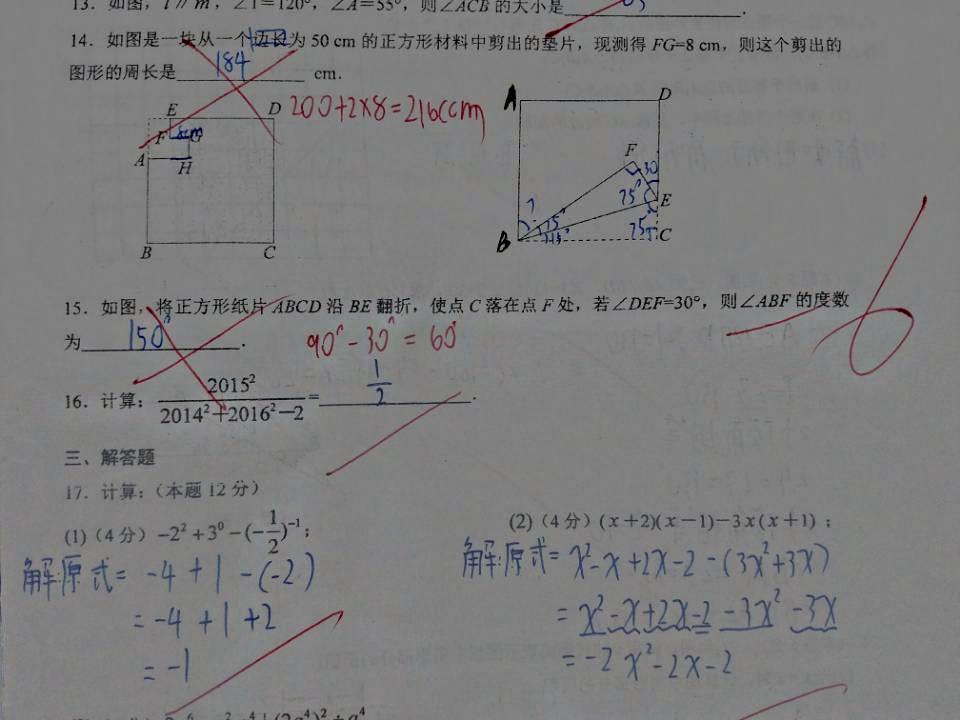 13. 如图，l∥m，∠1=120°，∠A=55°，则∠ACB 的大小是
14. 如图是一块从一个边长为 50 cm 的正方形材料中剪出的垫片，现测得 FG=8 cm，则这个剪出的
图形的周长是 184 cm.
200+2×8=216(cm)
E D
F 8cm G
A H
B C
A D
F 30
75° E
? 15°
15° 75°
B C
15. 如图，将正方形纸片 ABCD 沿 BE 翻折，使点 C 落在点 F 处，若∠DEF=30°，则∠ABF 的度数
为 150° .
90°-30°=60°
6
16. 计算：2015²/(2014²+2016²-2)= 1/2 .
三、解答题
17. 计算：（本题 12 分）
(1)（4 分）-2²+3⁰-(-1/2)⁻¹；
解:原式= -4+1-(-2)
= -4+1+2
= -1
(2)（4 分）(x+2)(x-1)-3x(x+1)；
解:原式= x²-x+2x-2-(3x²+3x)
= x²-x+2x-2-3x²-3x
= -2x²-2x-2